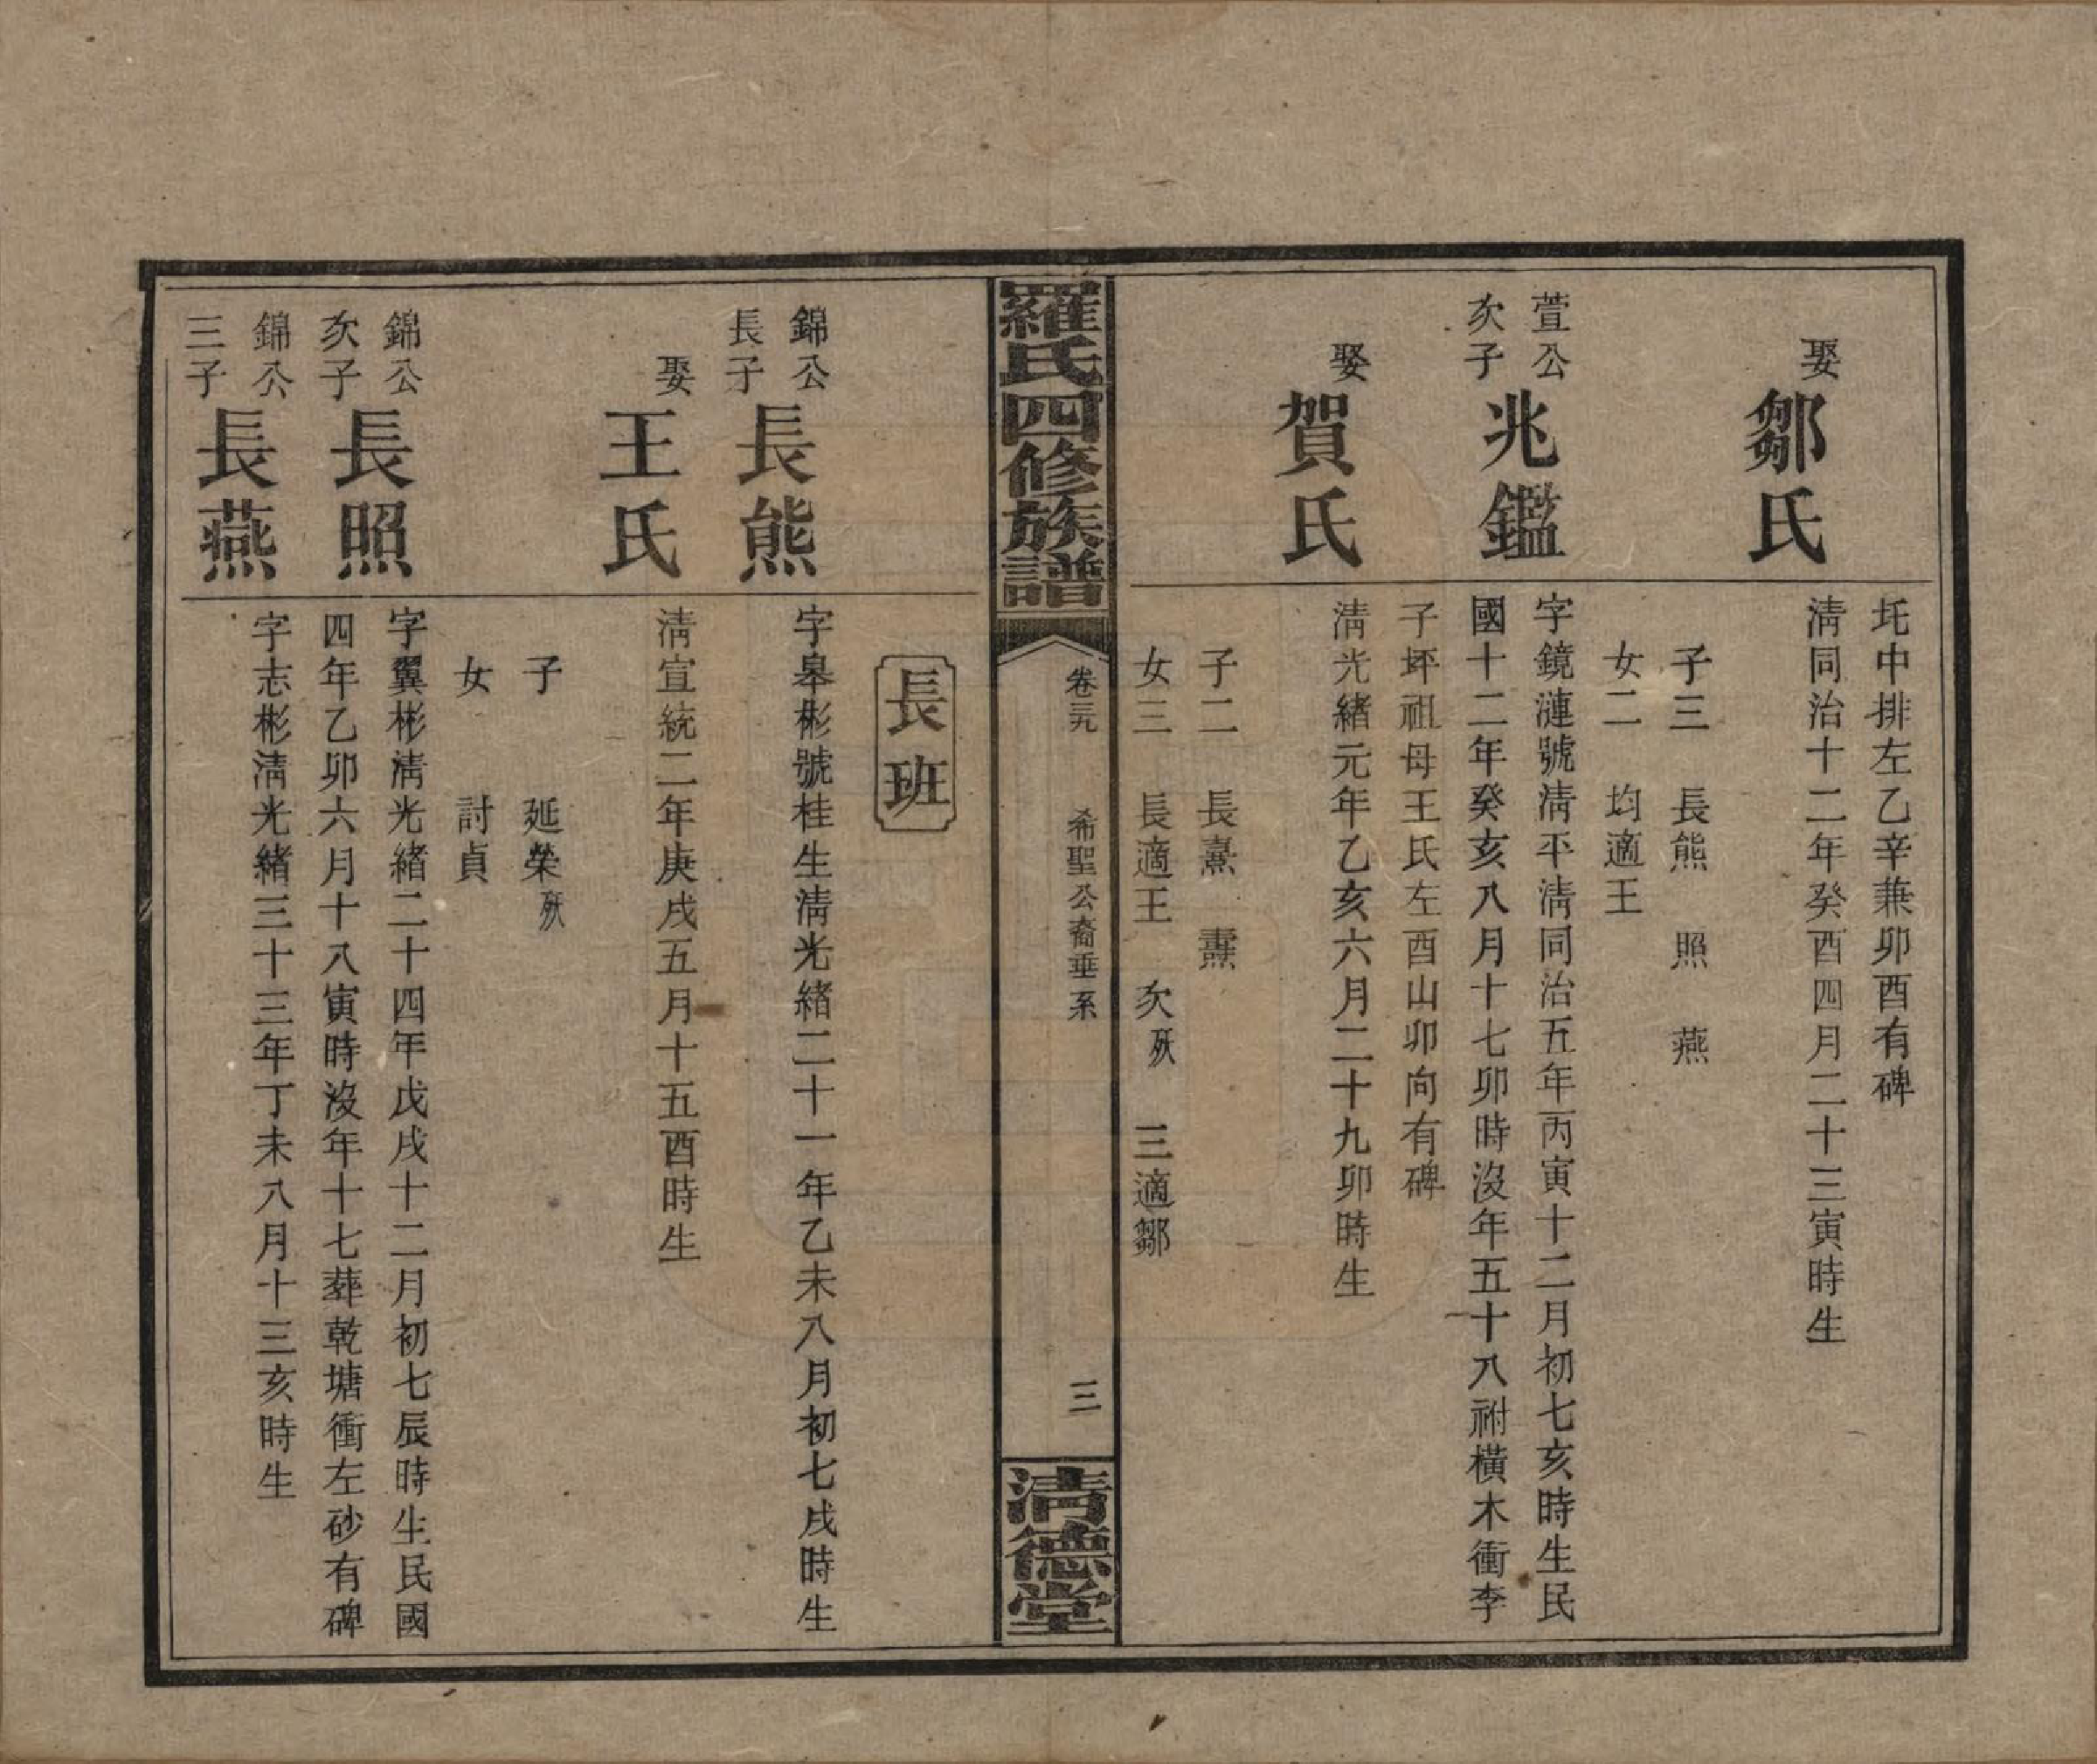 圫中排左乙辛兼卯酉有碑
娶
鄒氏
淸同治十二年癸酉四月二十三寅時生
子三 長熊 照 燕
女二 均適王
萱公
次子
兆鑑
字鏡漣號淸平淸同治五年丙寅十二月初七亥時生民
國十二年癸亥八月十七卯時沒年五十八祔橫木衝李
子坪祖母王氏左酉山卯向有碑
娶
賀氏
淸光緒元年乙亥六月二十九卯時生
子二 長熹 燾
女三 長適王 次殀 三適鄒
羅氏四修族譜
卷三九 希聖公裔垂系 三
淸德堂
長班
錦公
長子
長熊
字皋彬號桂生淸光緒二十一年乙未八月初七戌時生
娶
王氏
淸宣統二年庚戌五月十五酉時生
子 延榮殀
女 討貞
錦公
次子
長照
字翼彬淸光緒二十四年戊戌十二月初七辰時生民國
四年乙卯六月十八寅時沒年十七葬乾塘衝左砂有碑
錦公
三子
長燕
字志彬淸光緒三十三年丁未八月十三亥時生